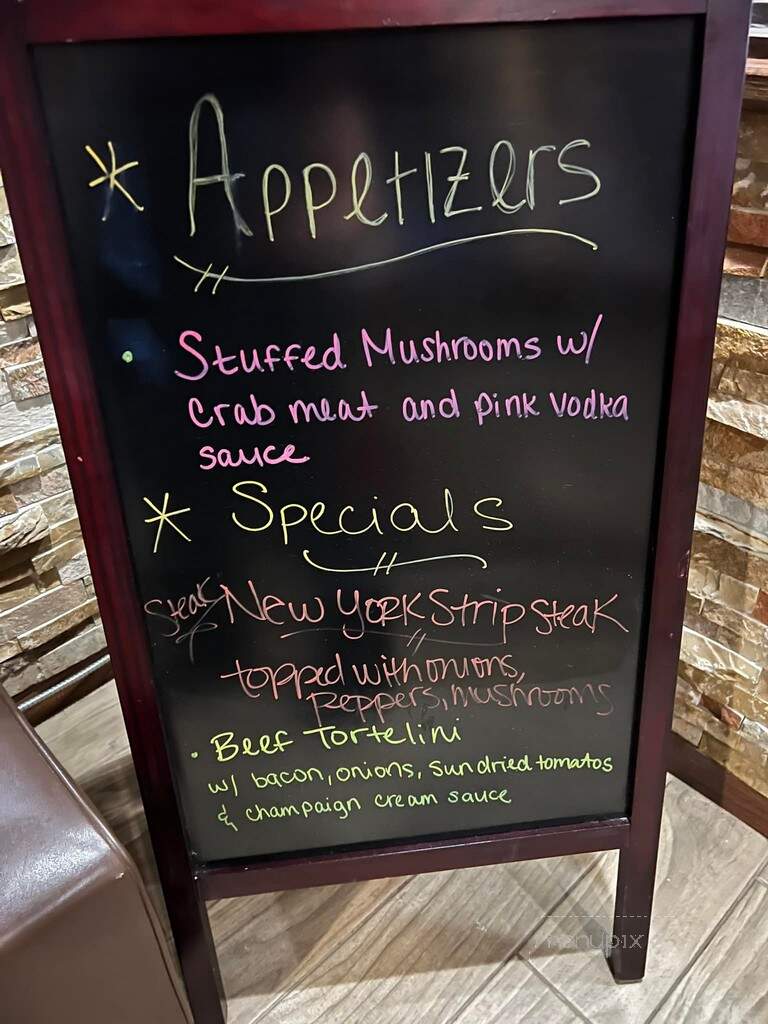 * Appetizers
• Stuffed Mushrooms w/
Crab meat and pink vodka
sauce
* Specials
Steak New York Strip Steak
topped with onions,
peppers, mushrooms
• Beef Tortelini
w/ bacon, onions, sundried tomatos
& champaign cream sauce
menupix